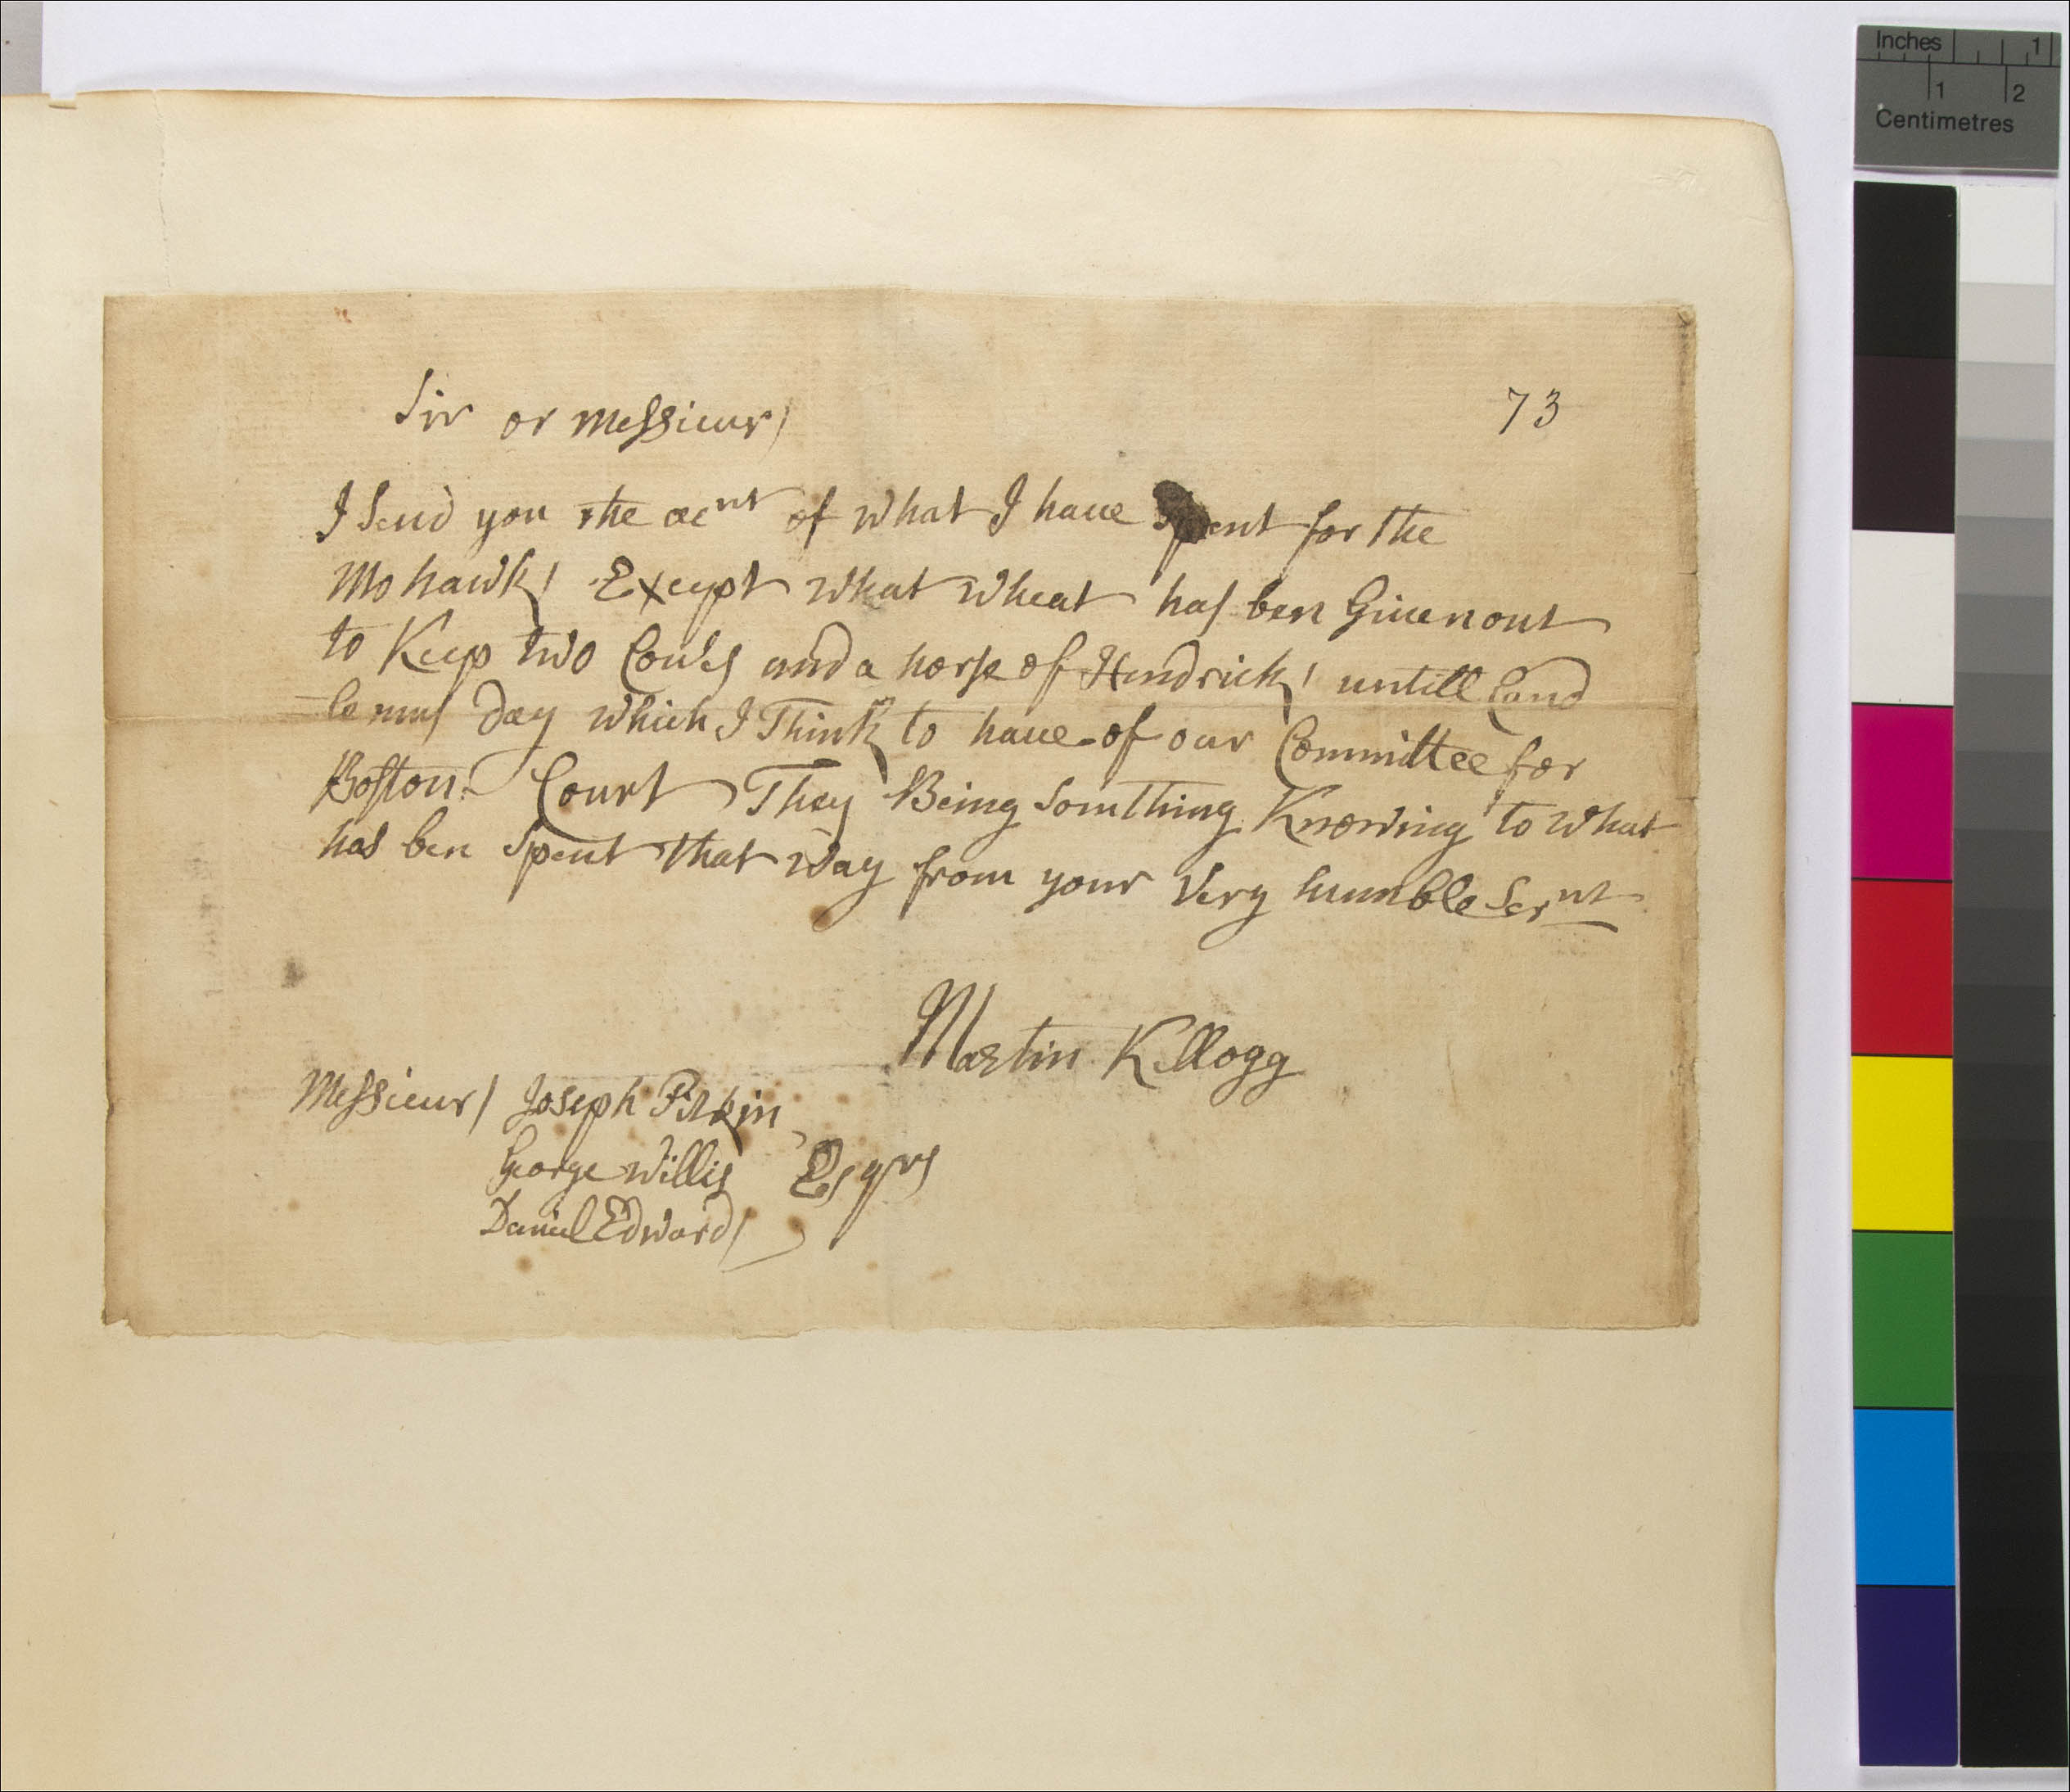 Inches 1
1 2
Centimetres
73
Sir or Messieurs
I Send you the acnt of what I haue Spent for the
Mohawks Except what wheat has ben Giuen out
to Keep two Cows and a horse of Hendricks untill Cand
lemus Day which I Think to haue of our Committee for
Boston Court They Being Somthing Knowing to what
has ben Spent that way from your Very humble Sernt
Martin Kellogg
Messieurs Joseph Pitkin
George Willis Esqrs
Daniel Edwards